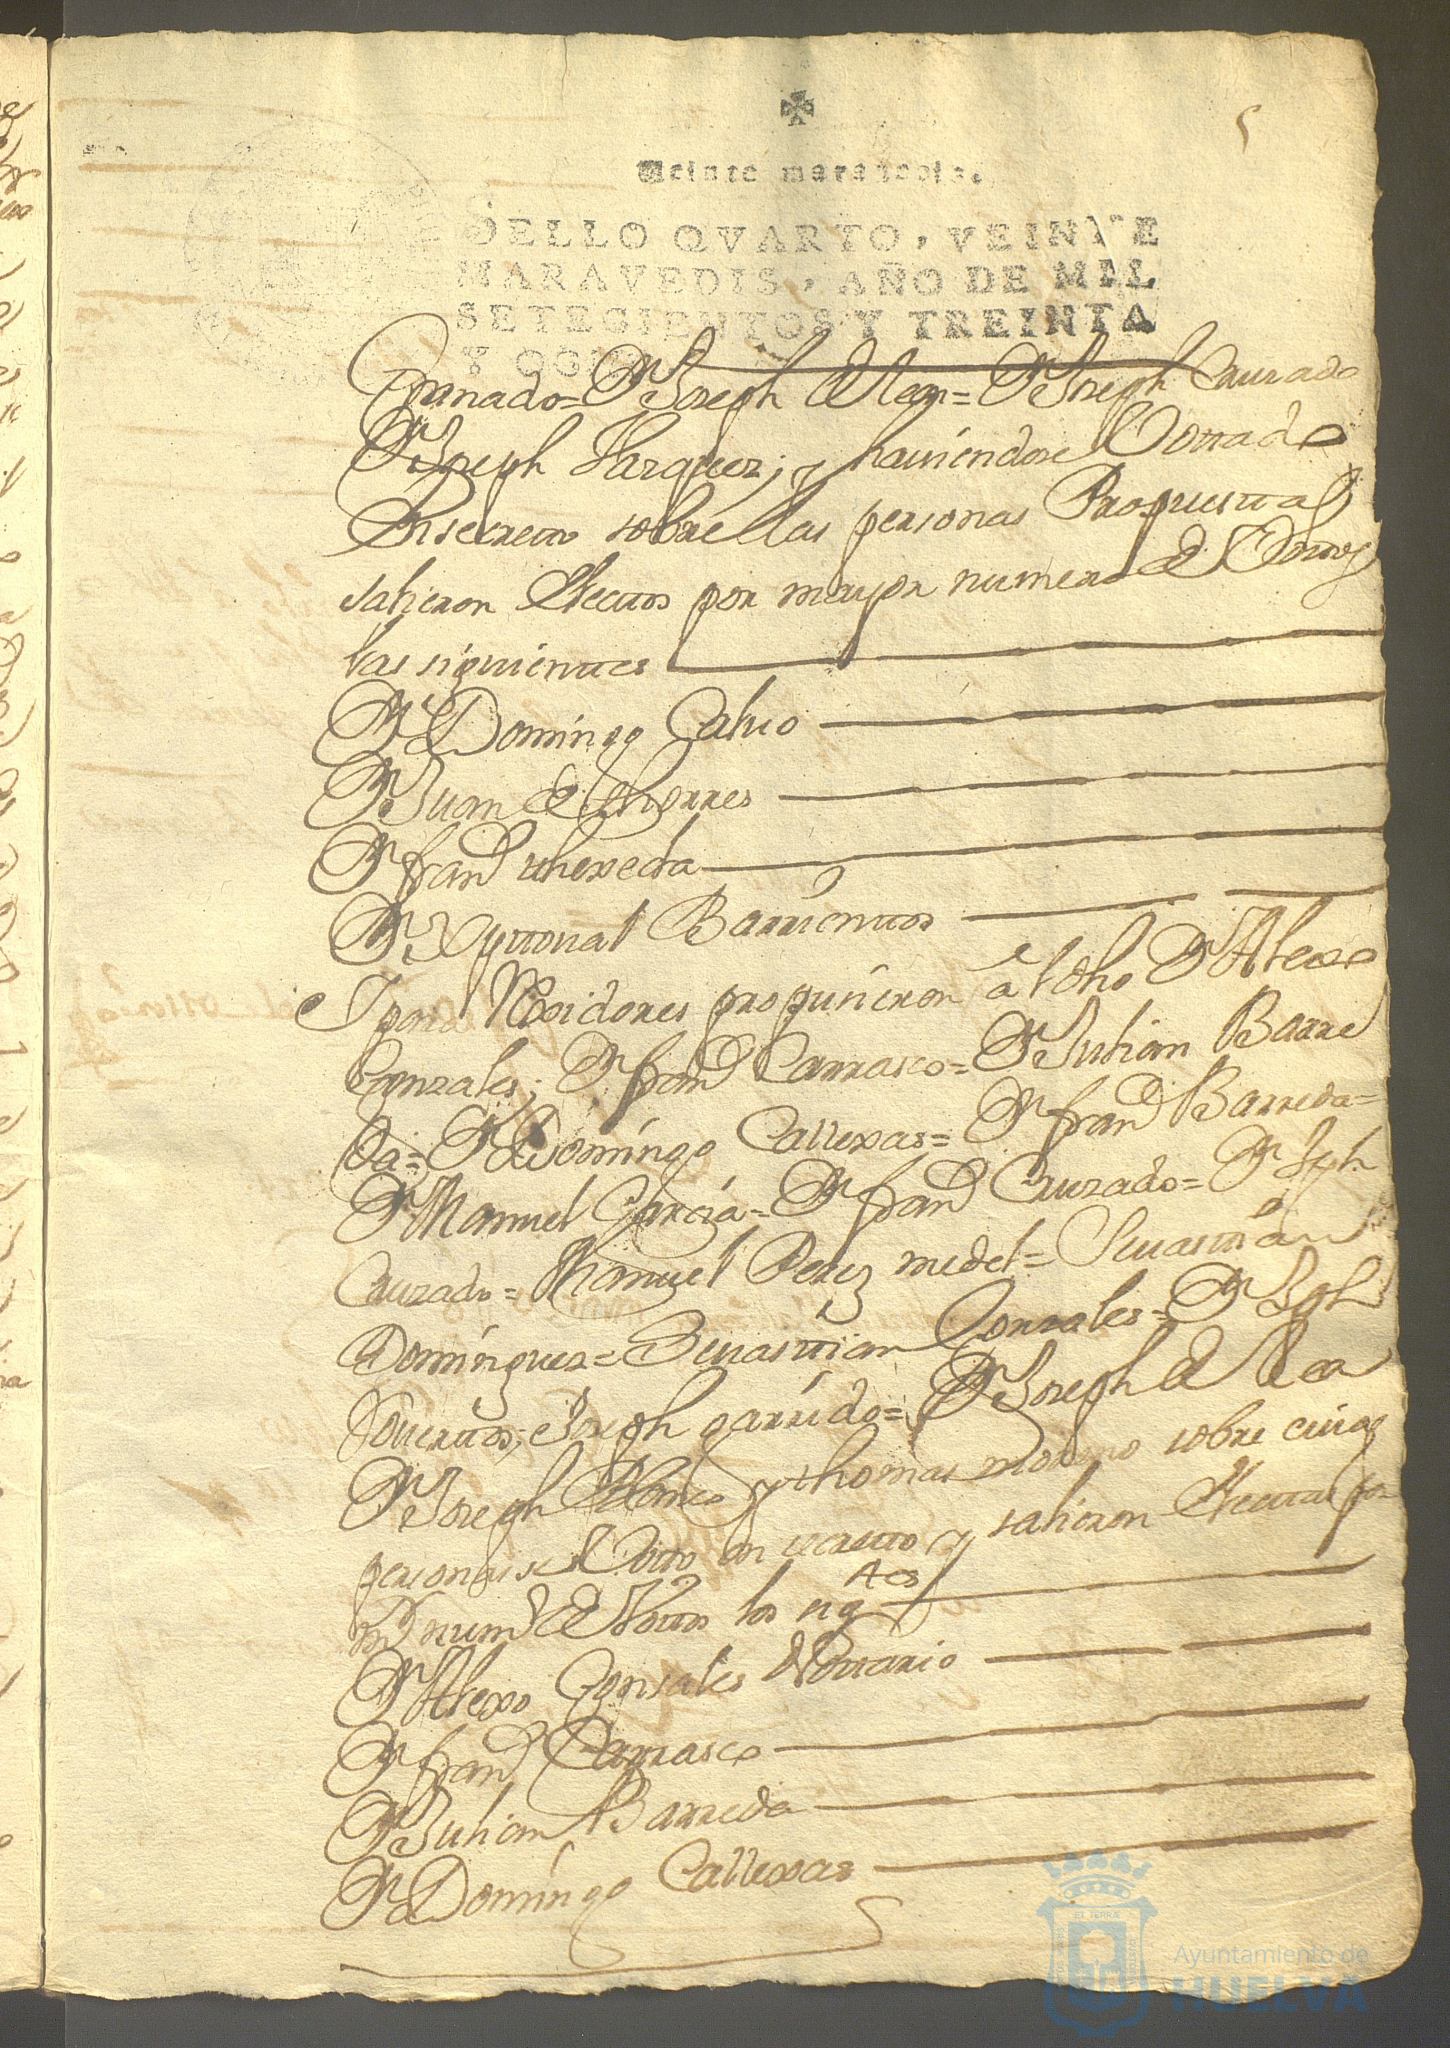 5
Veinte maravedis.
SELLO QVARTO, VEINTE
MARAVEDIS, AÑO DE MIL
SETECIENTOS Y TREINTA
Y OCHO
Granado = Dn Joseph de Lea = Dn Joseph Cruzado
Dn Joseph Vazquez; y haviendose Vottado
En secretto sobre las personas Propuestas
salieron Electtos por mayor numero de Vottos
los siguienttes
Dn Domingo Calvo
Dn Juan de thorres
Dn franco thexeda
Dn Xpttoval Barrienttos
Y para Rexidores propusieron â el dho Dn Alexo
Gonzales; Dn franco Carrasco = Dn Julian Barre
da = Dn Domingo Callexas = Dn franco Barreda =
Dn Manuel Garzia = Dn franco Cruzado = Dn Jph
Cruzado = Manuel Perez medel = Sevasttian
Dominguez = Sevasttian Gonzales = Dn Jph
Joseph garrido = Dn Joseph de Lea
Dn Joseph y thomas moreno sobre cuias
personas se Votto en secretto y salieron Electtas por
mor numo de Vottos los sigtes
Dn Alexo Gonsales Nottario
Dn franco Carrasco
Dn Julian Barreda
Dn Domingo Callexas
Ayuntamiento de
HUELVA